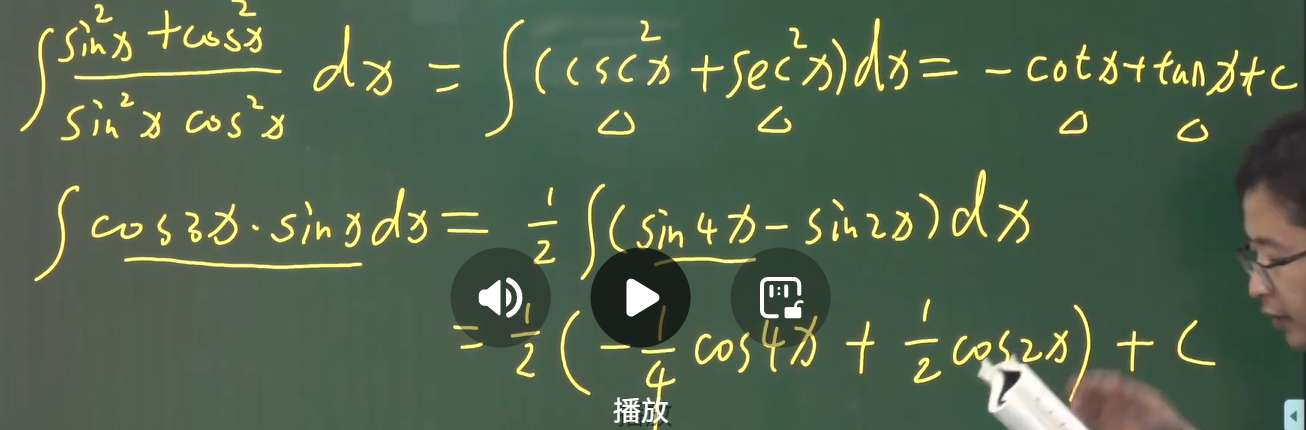 ∫ (sin²x + cos²x)/(sin²x cos²x) dx = ∫(csc²x + sec²x)dx = -cotx + tanx + c
∫ cos3x · sinx dx = 1/2 ∫(sin4x - sin2x)dx
= 1/2 (-1/4 cos4x + 1/2 cos2x) + C
播放